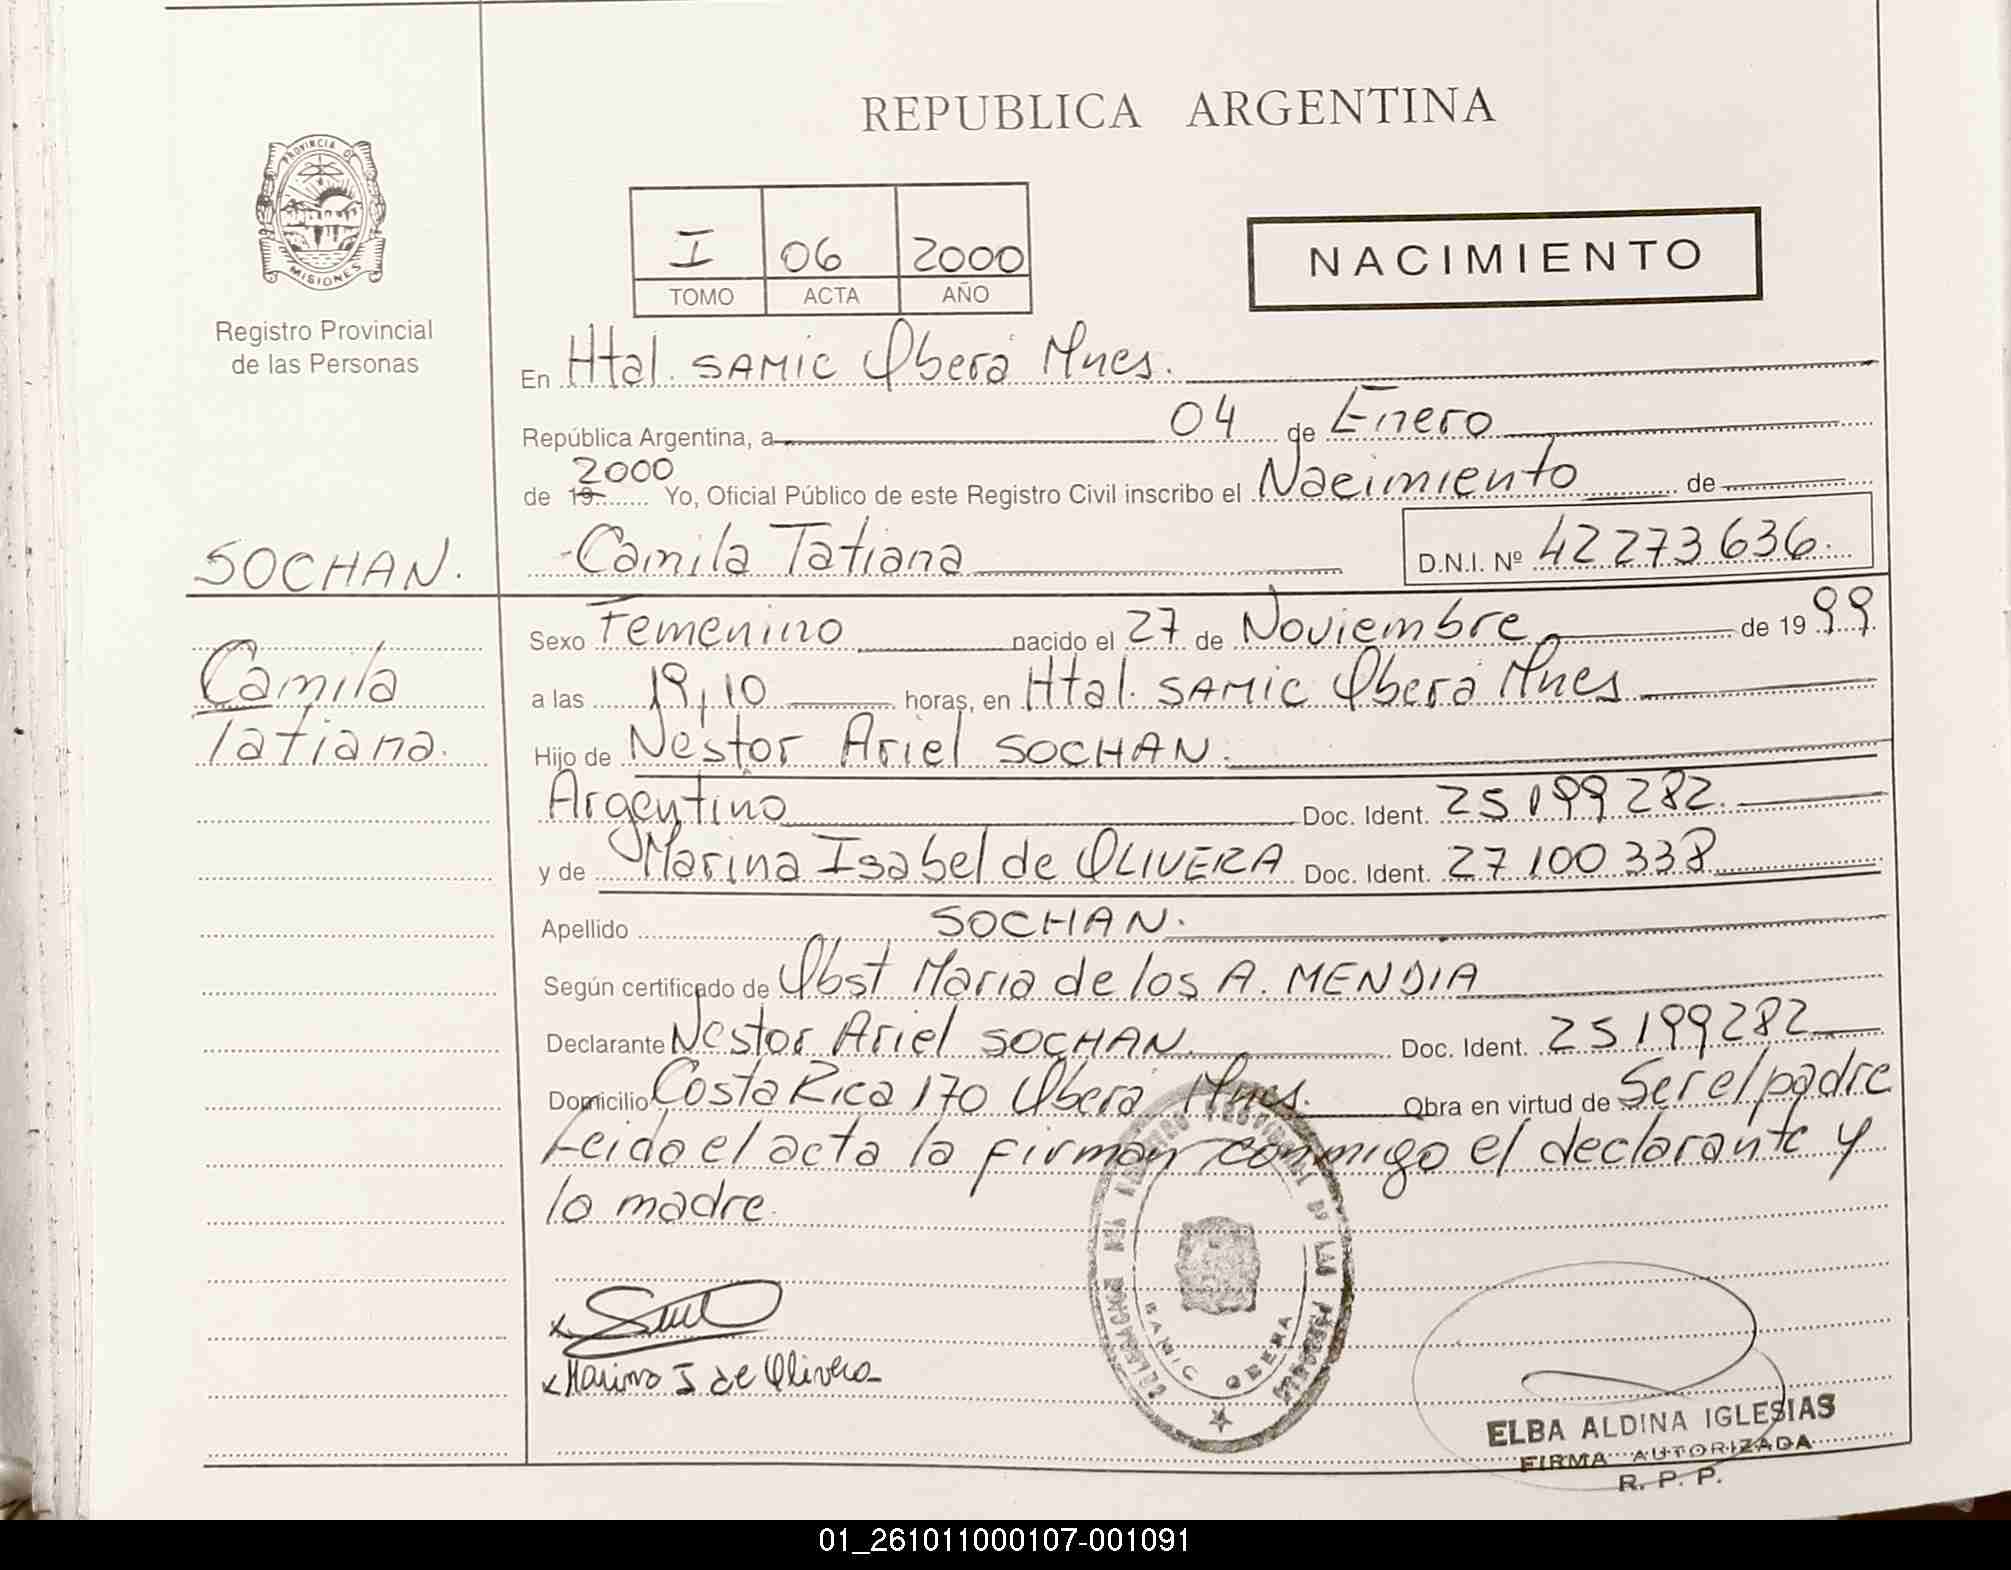 REPUBLICA ARGENTINA
PROVINCIA DE
MISIONES
Registro Provincial
de las Personas
I 06 2000
TOMO ACTA AÑO
NACIMIENTO
En Htal. SAMIC Oberá Mnes.
República Argentina, a 04 de Enero
2000
de 19 Yo, Oficial Público de este Registro Civil inscribo el Nacimiento de
SOCHAN.
Camila Tatiana D.N.I. Nº 42273636.
Camila
Tatiana.
Sexo Femenino nacido el 27 de Noviembre de 1999
a las 19,10 horas, en Htal. SAMIC Oberá Mnes
Hijo de Nestor Ariel SOCHAN.
Argentino Doc. Ident. 25199282.
y de Marina Isabel de OLIVERA Doc. Ident. 27100338
Apellido SOCHAN.
Según certificado de Obst Maria de los A. MENDIA
Declarante Nestor Ariel SOCHAN. Doc. Ident. 25199282
Domicilio Costa Rica 170 Oberá Mnes. Obra en virtud de Ser el padre
Leida el acta la firman conmigo el declarante y
la madre.
x
x Marina I de Olivera
SAMIC OBERA
ELBA ALDINA IGLESIAS
FIRMA AUTORIZADA
R. P. P.
01_261011000107-001091